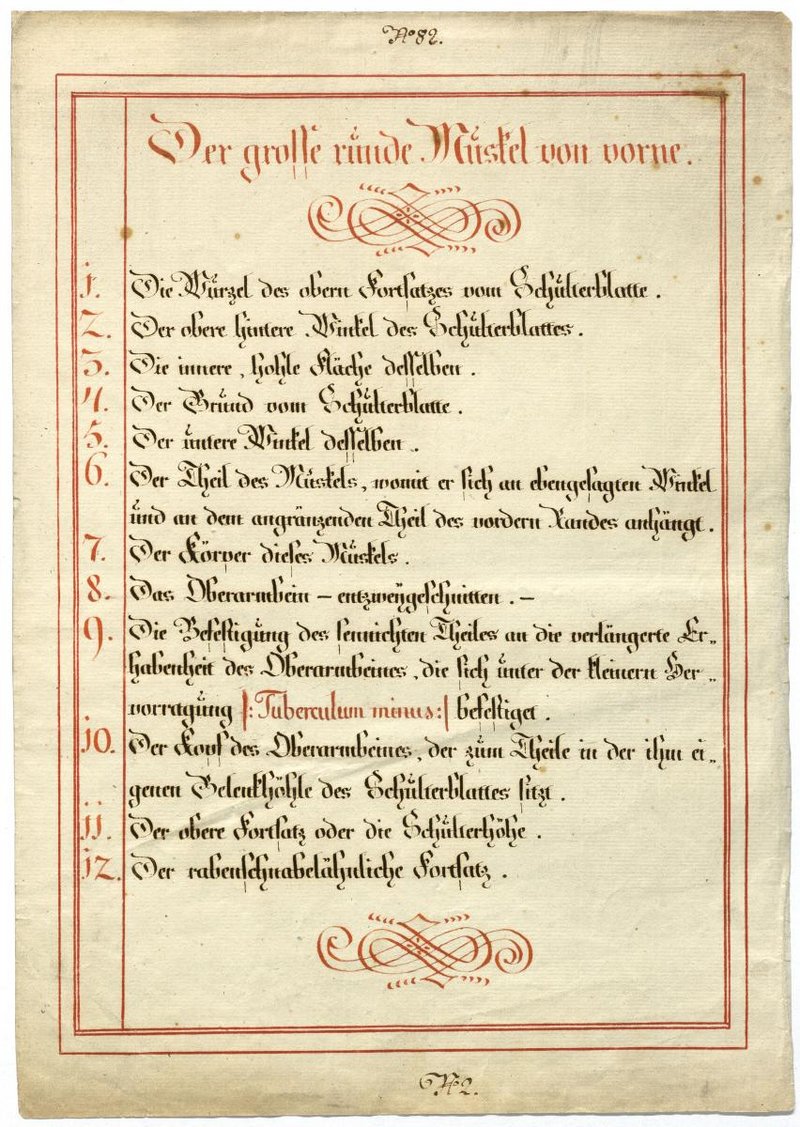 No 82.
Der grosse runde Muskel von vorne.
1. Die Wurzel des obern Fortsatzes vom Schulterblatte.
2. Der obere hintere Winkel des Schulterblattes.
3. Die innere, hohle Fläche desselben.
4. Der Grund vom Schulterblatte.
5. Der untere Winkel desselben.
6. Der Theil des Muskels, womit er sich an ebengesagten Winkel
und an dem angränzenden Theil des vordern Randes anhängt.
7. Der Körper dieses Muskels.
8. Das Oberarmbein – entzweygeschnitten. –
9. Die Befestigung des sennichten Theiles an die verlängerte Er„
habenheit des Oberarmbeines, die sich unter der kleinern Her„
vorragung |: Tuberculum minus :| befestiget.
10. Der Kopf des Oberarmbeines, der zum Theile in der ihm ei„
genen Gelenkhöhle des Schulterblattes sitzt.
11. Der obere Fortsatz oder die Schulterhöhe.
12. Der rabenschnabelähnliche Fortsatz.
No 2.